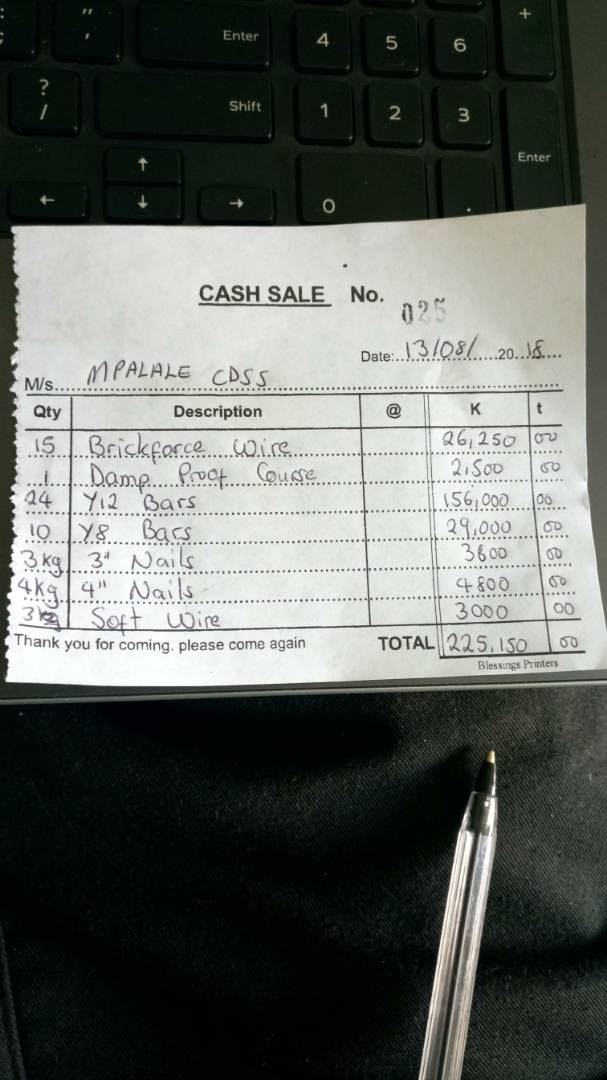 +
"
'
;
Enter
4
5
6
?
/
Shift
1
2
3
Enter
↑
←
↓
→
0
.
CASH SALE No. 025
Date:..13/08/.....20..18....
M/s.... MPALALE CDSS
Qty Description @ K t
15 Brickforce Wire 26,250 00
1 Damp Proof Course 2,500 00
24 Y12 Bars 156,000 00
10 Y8 Bars 29,000 00
3kg 3" Nails 3600 00
4kg 4" Nails 4800 00
3kg Soft Wire 3000 00
Thank you for coming. please come again TOTAL 225,150 00
Blessings Printers